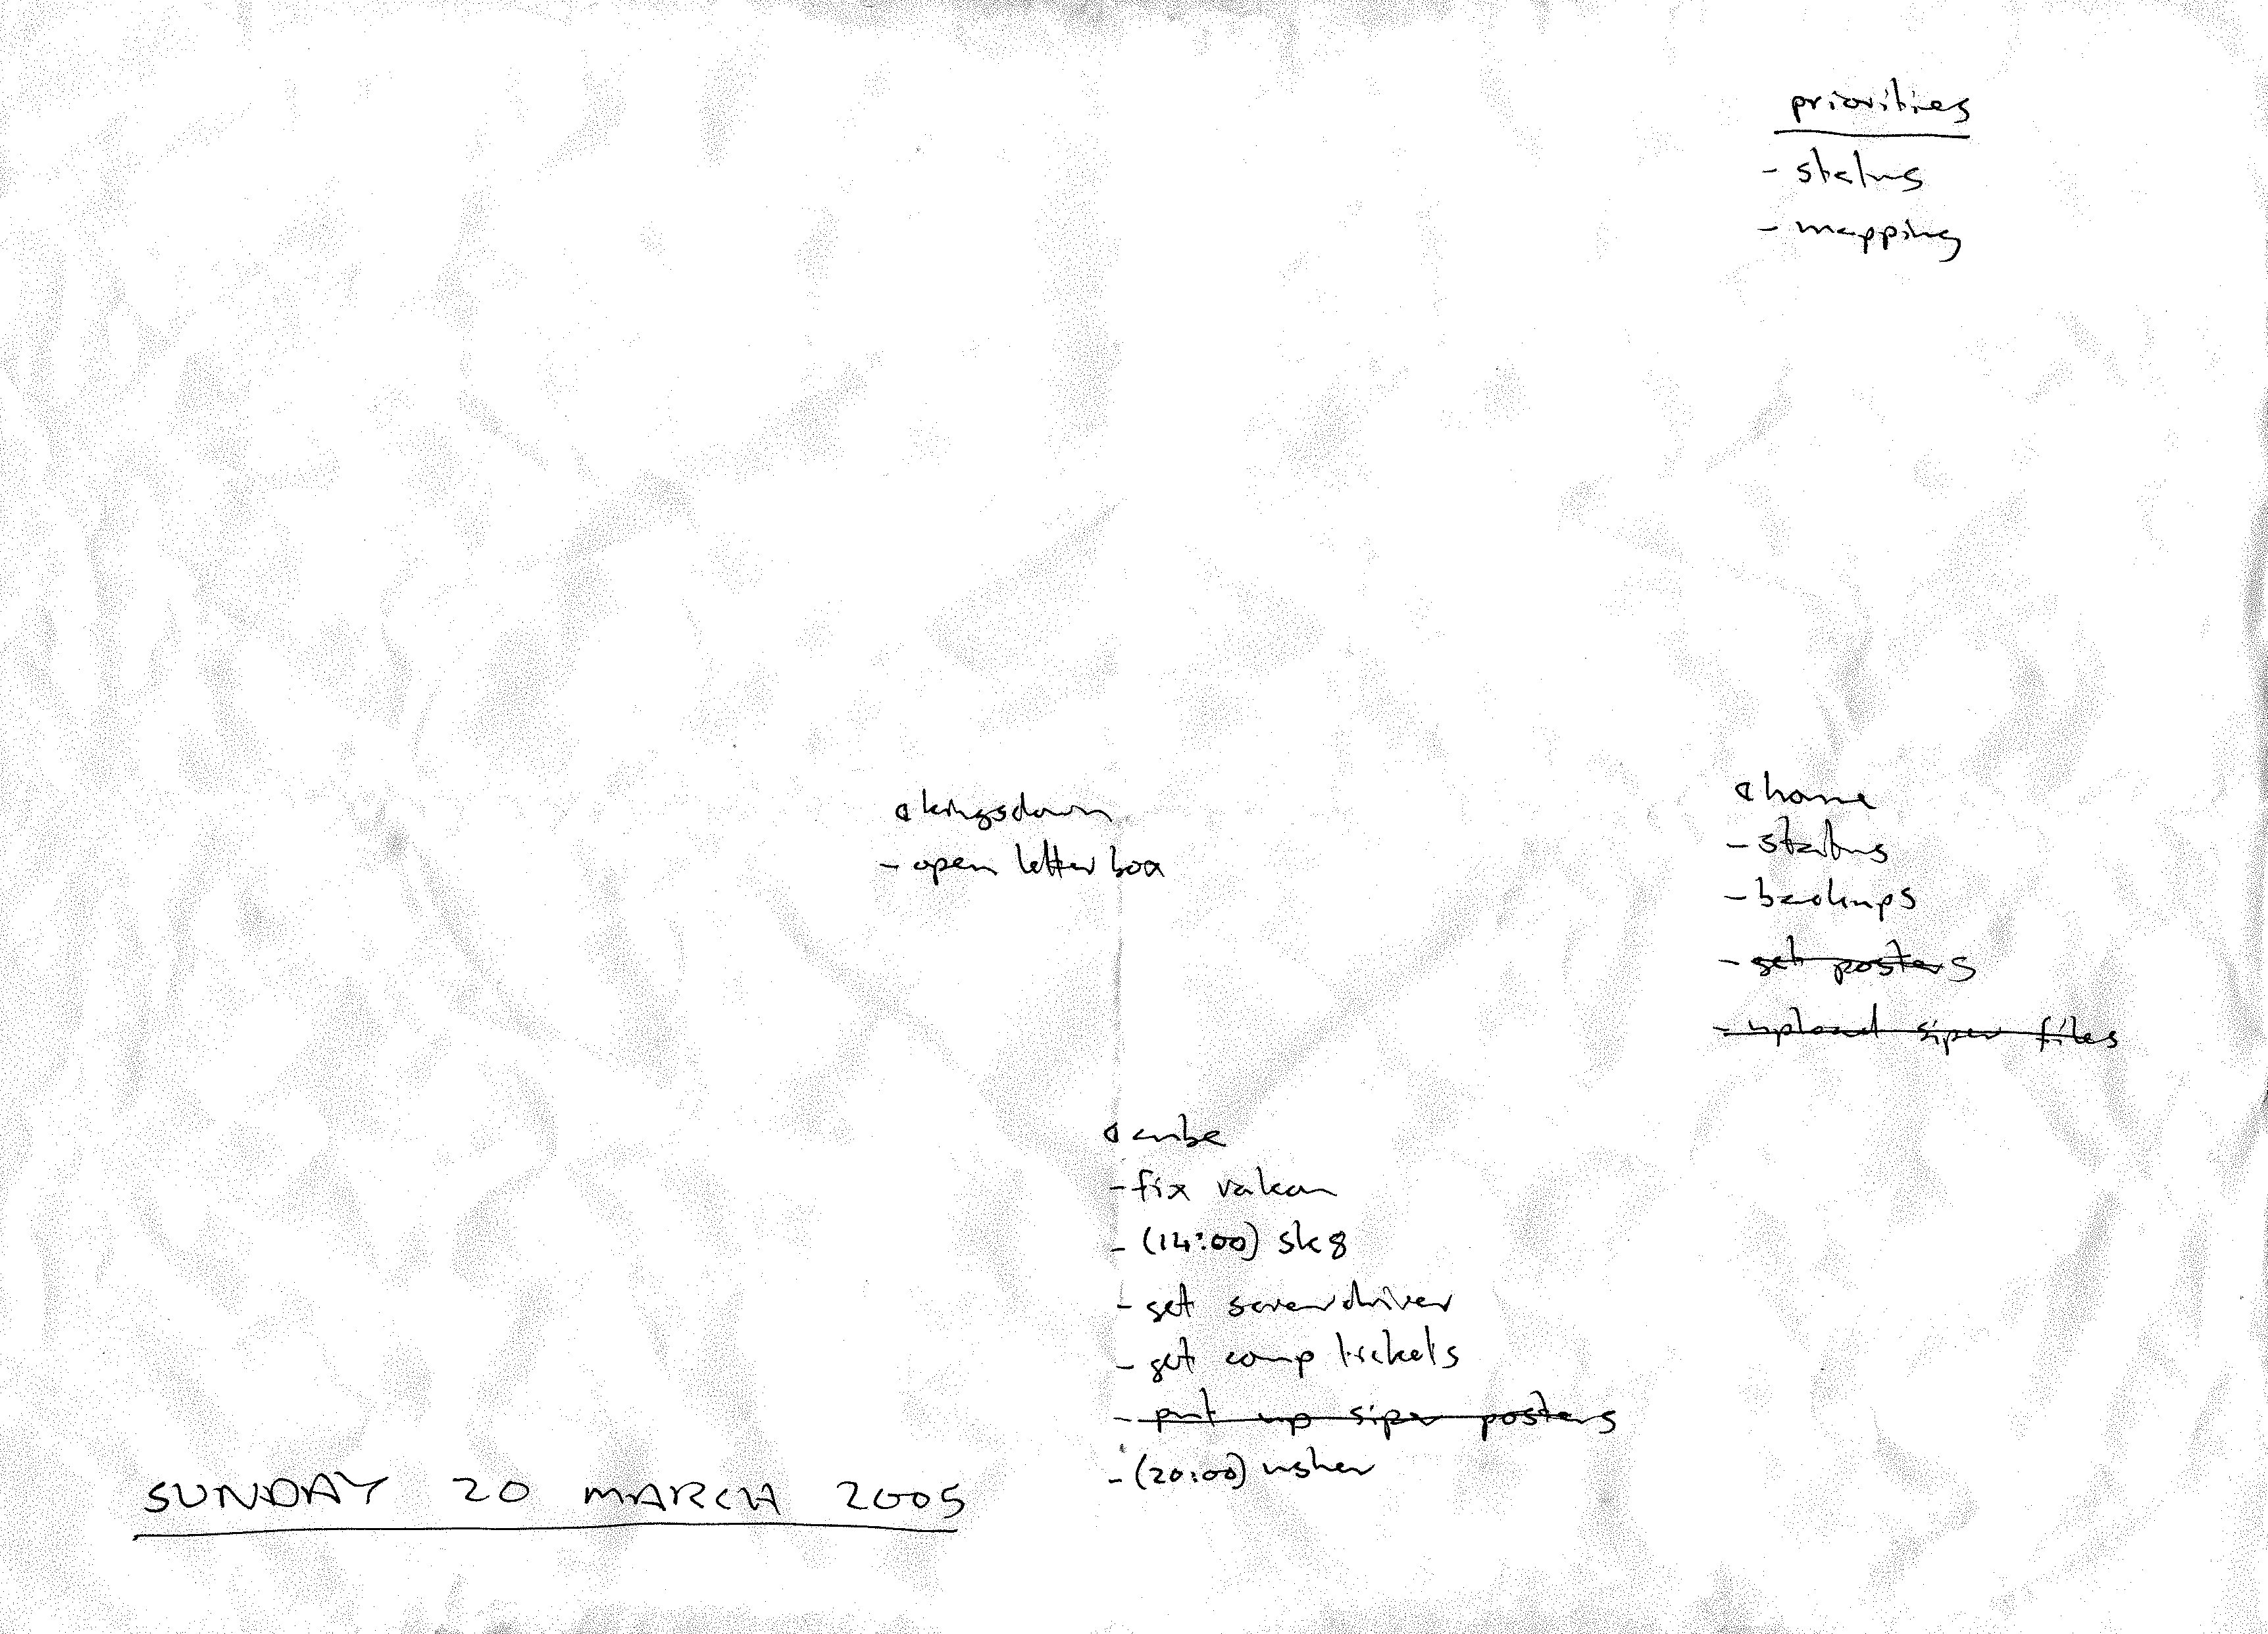 priorities
- status
- mapping
@kingsdown
- open letter box
@home
- status
- backups
- get posters
- upload siper files
@cube
- fix vulcan
- (14:00) sk8
- get screwdriver
- get comp tickets
- put up siper posters
- (20:00) usher
SUNDAY 20 MARCH 2005